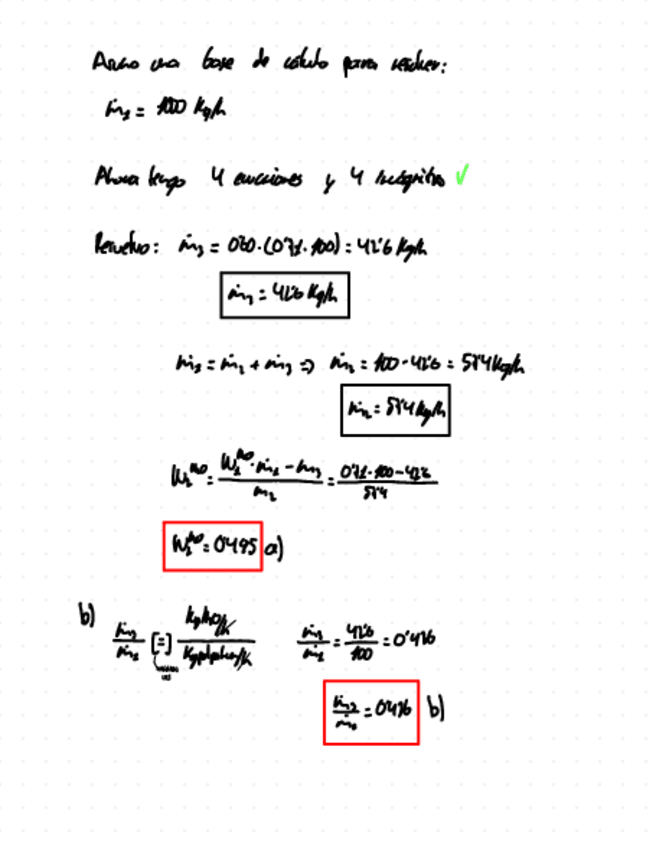 Asumo una base de cálculo para resolver:
ṁ₁ = 100 Kg/h
Ahora tengo 4 ecuaciones y 4 incógnitas ✓
Resuelvo: ṁ₃ = 0'60·(0'71·100) = 42'6 Kg/h
ṁ₃ = 42'6 Kg/h
ṁ₁ = ṁ₂ + ṁ₃ => ṁ₂ = 100 - 42'6 = 57'4 Kg/h
ṁ₂ = 57'4 Kg/h
W₂^H₂O = (W₁^H₂O · ṁ₁ - ṁ₃) / ṁ₂ = (0'71·100 - 42'6) / 57'4
W₂^H₂O = 0'495 a)
b) ṁ₃/ṁ₁ [=] (Kg H₂O/h) / (Kg pulpa/h) ṁ₃/ṁ₁ = 42'6/100 = 0'426
ṁ₃/ṁ₁ = 0'426 b)